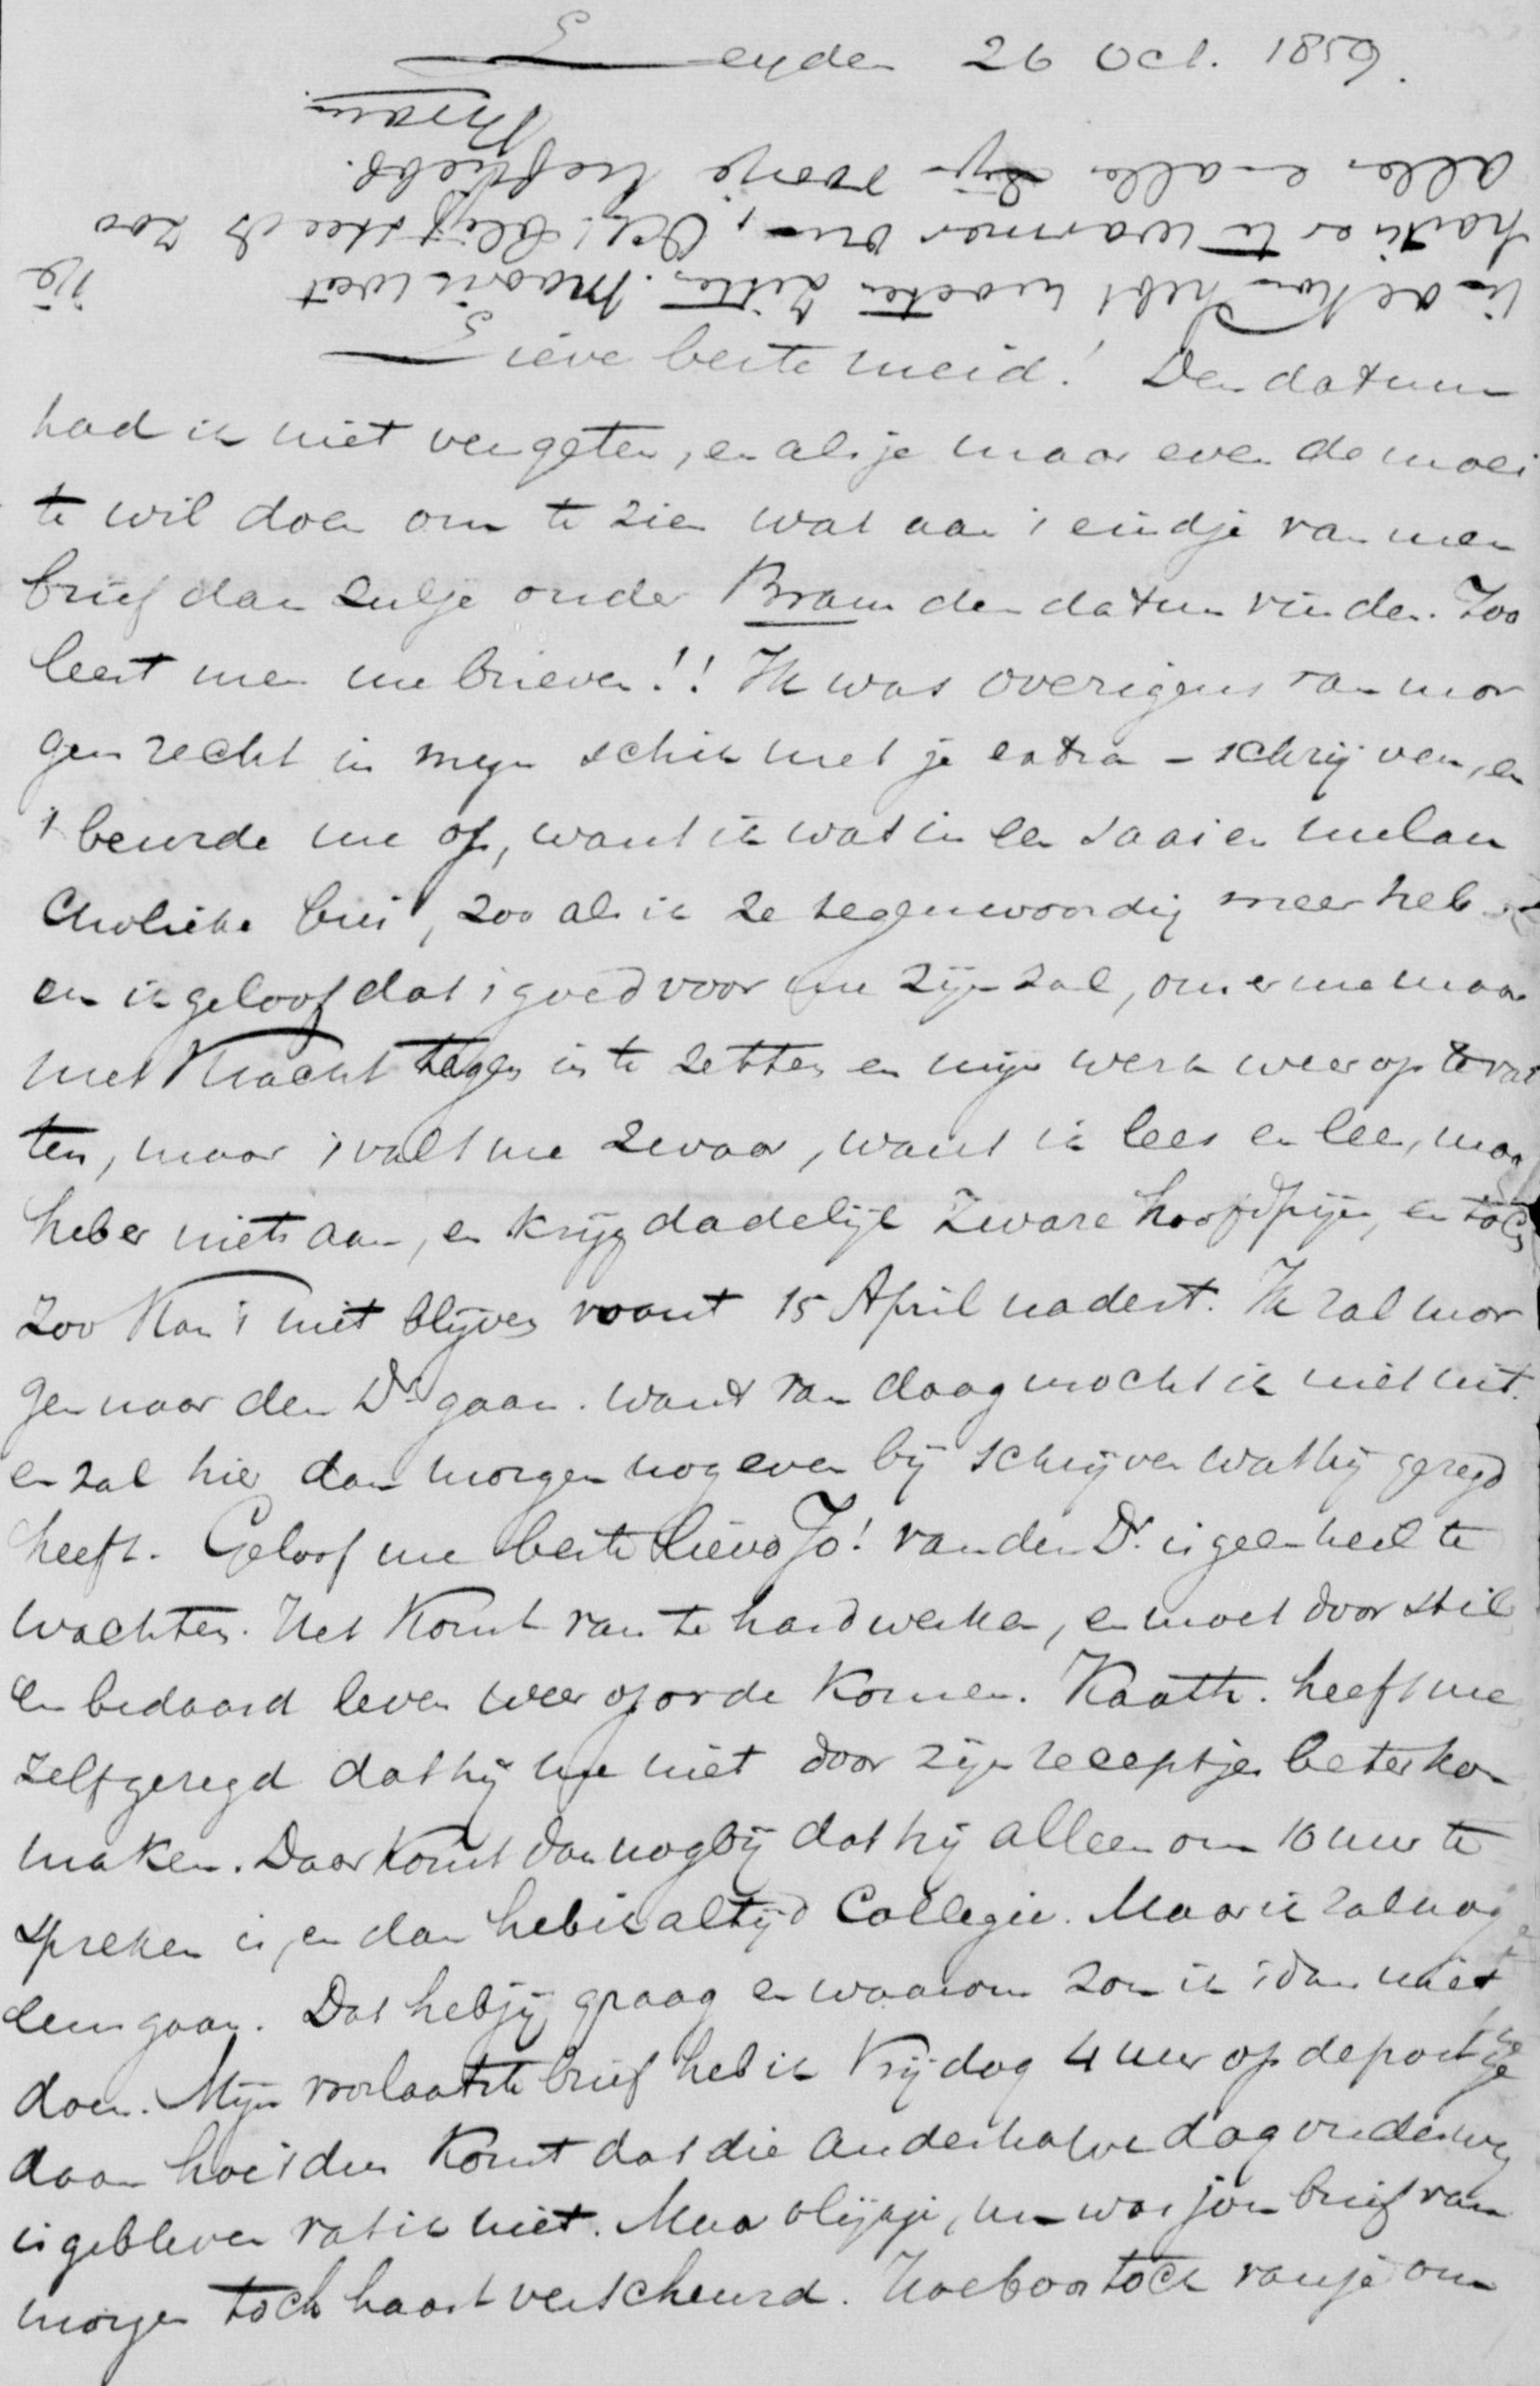 Leyden 26 Oct. 1859.
Lieve beste meid! Den datum
had ik niet vergeten, en als je maar even de moei
te wil doen om te zien wat aan 't eindje van men
brief dan zulje onder Bram den datum vinden. Zoo
leest men me brieven!! Ik was overigens van mor
gen recht in mijn schik met je extra-schrijven, en
't beurde me op, want ik wat in een saai en melan
cholieke bui, zoo als ik ze tegenwoordig meer heb
en ik geloof dat 't goed voor me zijn zal, om er me maar
met kracht tegen in te zetten en mijn werk weer op te vat
ten, maar 't valt me zwaar, want ik lees en lees, maar
heb er niets aan, en krijg dadelijk zware hoofdpijn, en toch
zoo kan 't niet blijven want 15 April nadert. Ik zal mor
gen naar den Dr gaan. want van daag mocht ik niet uit.
en zal hier dan morgen nog even bij schrijven wat hij gezegd
heeft. Geloof me beste lieve Jo! van den Dr. is geen heil te
wachten. Het komt van te hard werken, en moet door stil
en bedaard leven weer op orde komen. Kaath. heeft me
zelf gezegd dat hij me niet door zijn receptjes beter kon
maken. Daar komt dan nog bij dat hij alleen om 10 uur te
spreken is, en dan heb ik altijd Collegie. Maar ik zal nog
eens gaan. Dat heb jij graag en waarom zou ik 't dan niet
doen. Mijn voorlaatste brief heb ik Vrijdag 4 uur op de post ge
daan hoe 't dus komt dat die anderhalve dag onderweg
is gebleven vat ik niet. Maar olijkje, nu was jou brief van
morgen toch haast verscheurd. Hoe boos toch van je om
ik
in de kou hebt moeten zitten. Maar ik weet
hartje er te warmer om, Och! blijf steeds zoo
alles en alles mijn roosje liefhebd.
Bram